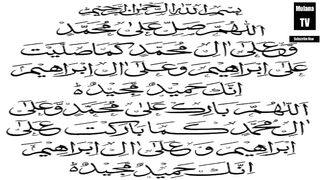 بسم الله الرحمن الرحيم
اللهم صل على محمد
وعلى ال محمد كما صليت
على ابراهيم وعلى ال ابراهيم
انك حميد مجيد
اللهم بارك على محمد وعلى
ال محمد كما باركت على
ابراهيم وعلى ال ابراهيم
انك حميد مجيد
Mulana
TV
Subscribe Now